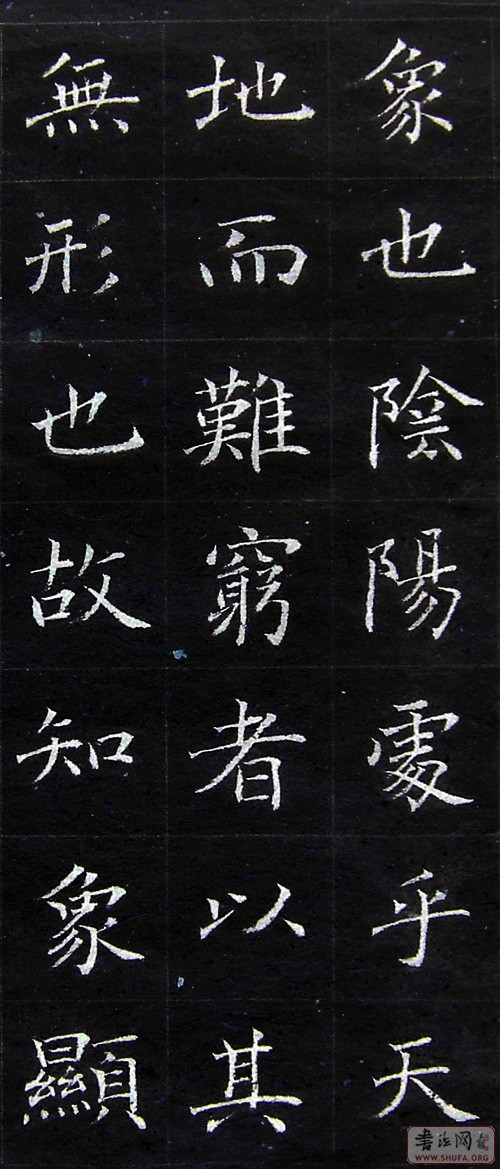 象也陰陽處乎天
地而難窮者以其
無形也故知象顯
書法网
WWW.SHUFA.ORG